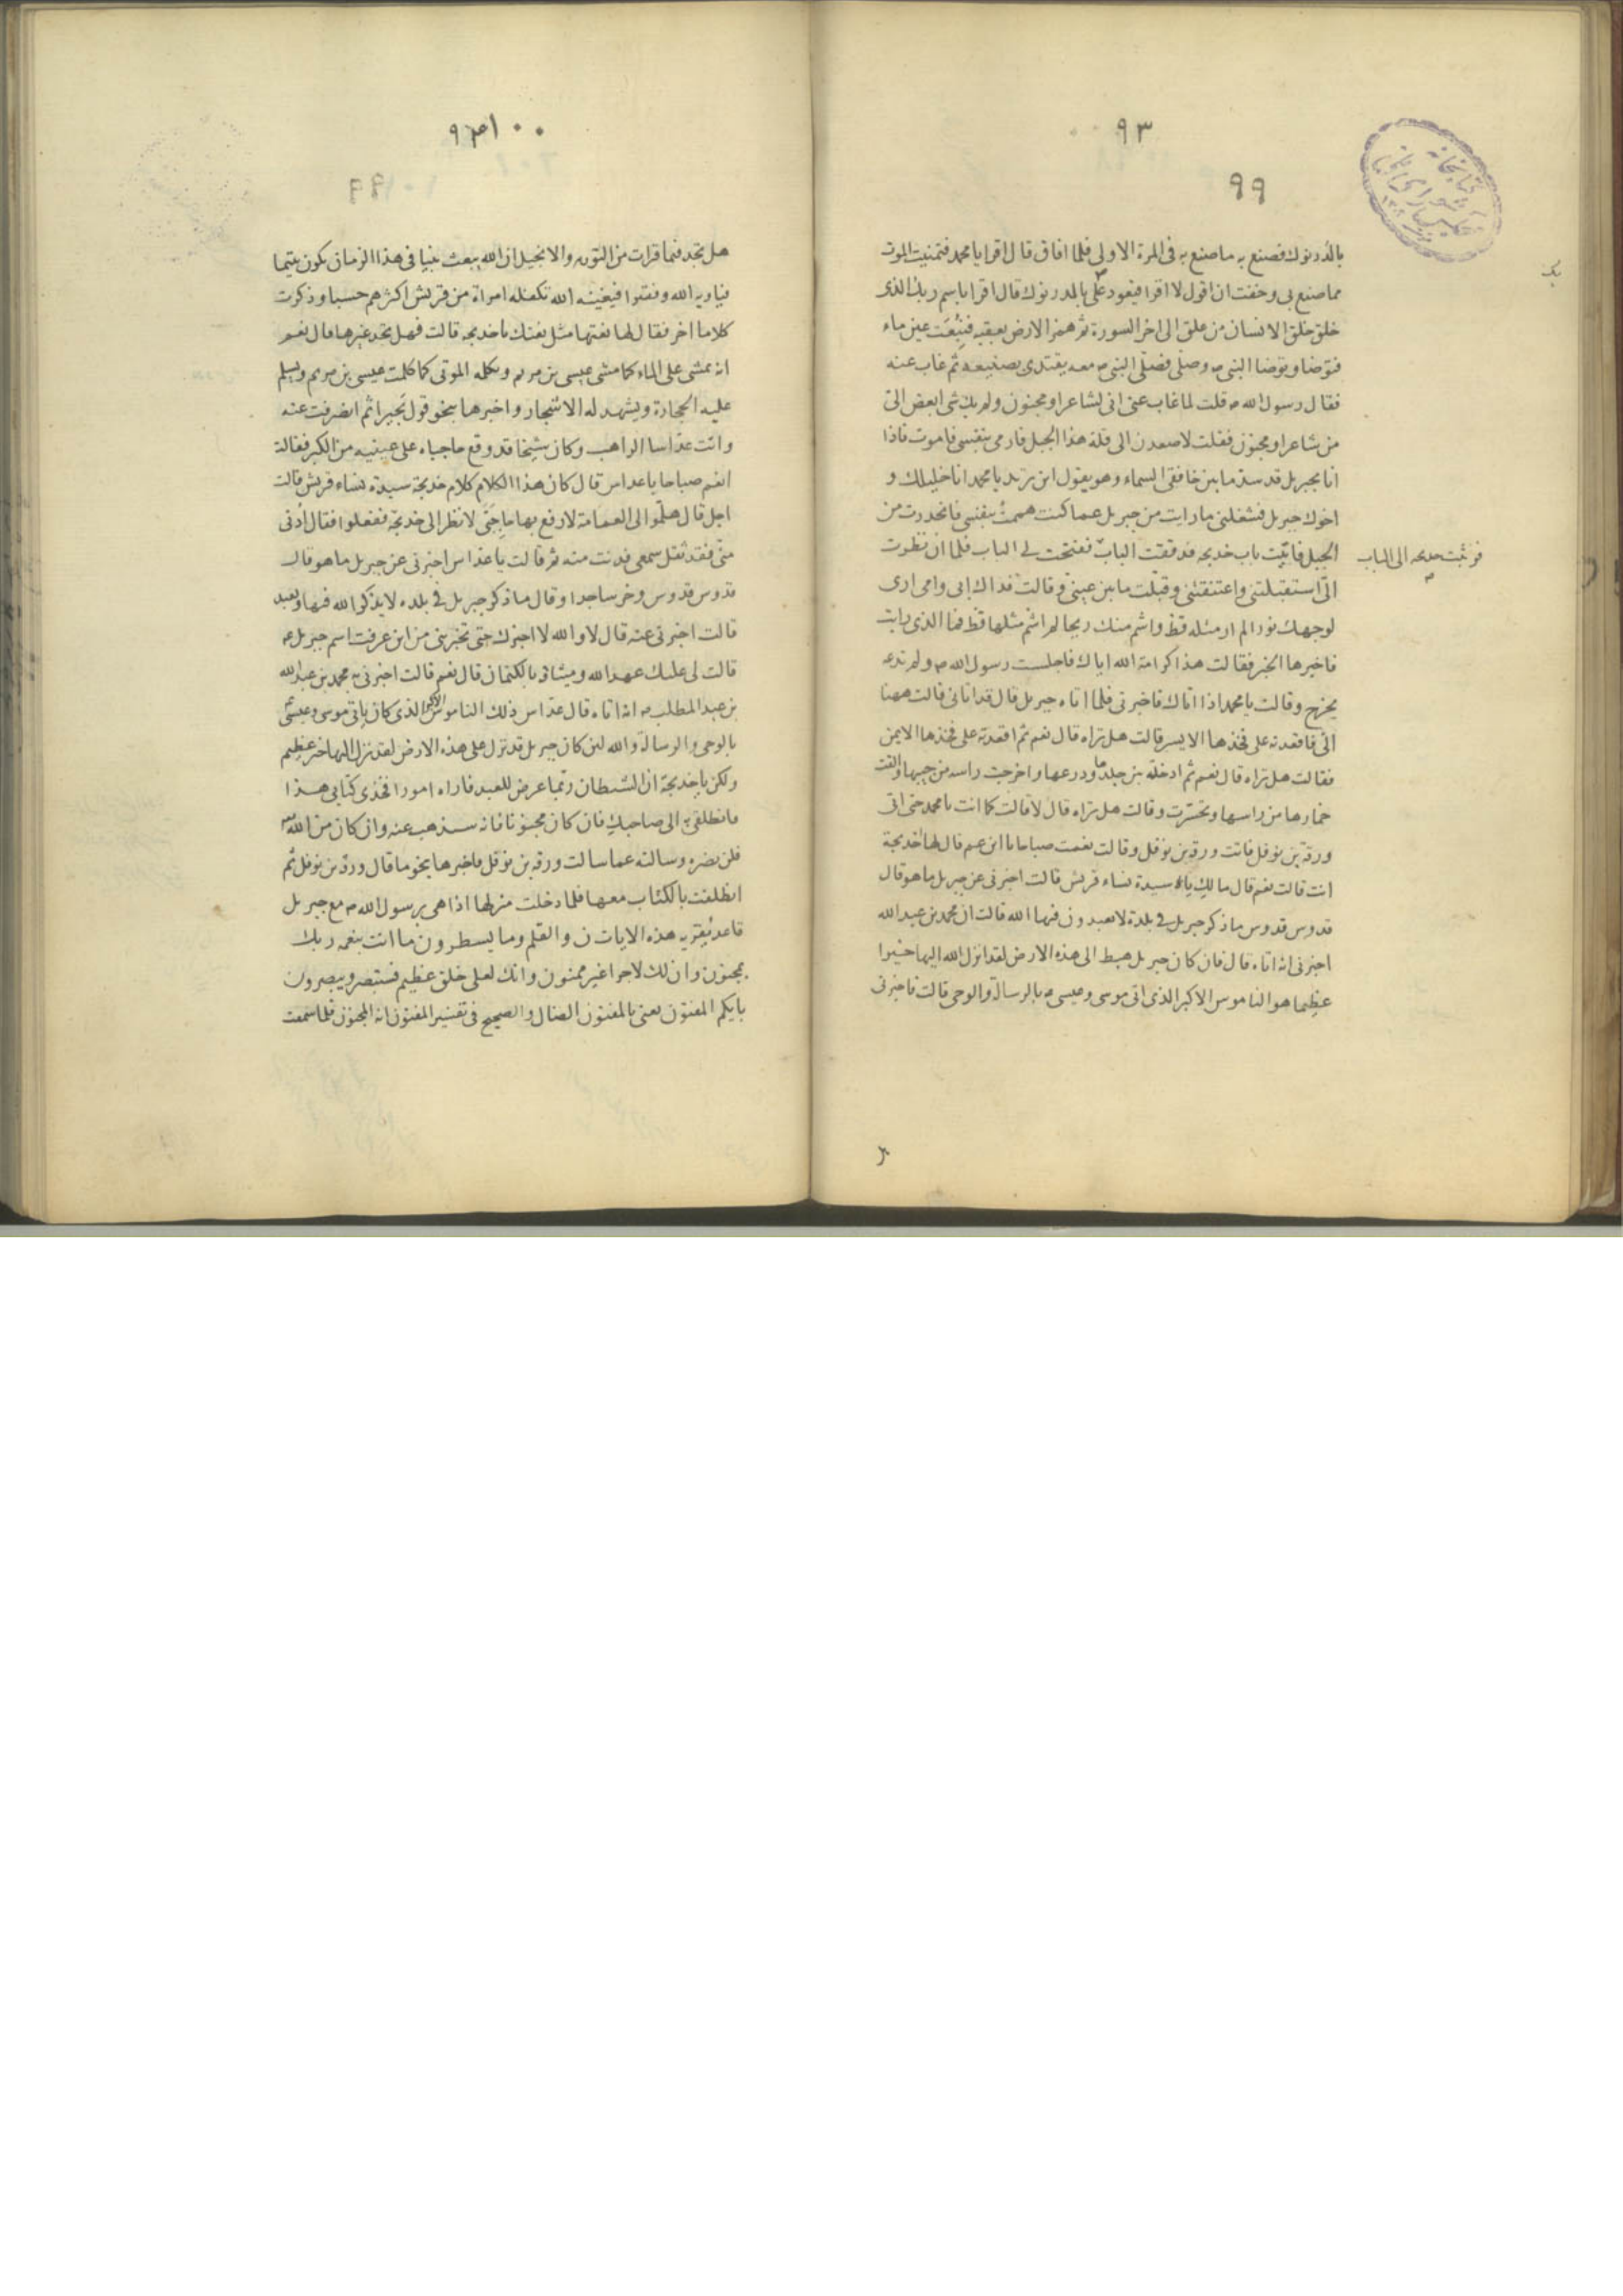 ٩٣
٩٩
بالدرنوك فصنع به ما صنع به فى المرة الاولى فلما افاق قال اقرا يا محمد فتمنيت الموت
مما صنع بى وخفت ان اقول لا اقرا فيعود على بالدرنوك قال اقرا باسم ربك الذى
خلق خلق الانسان من علق الى اخر السورة ثم همز الارض بعقبه فنبعت عين ماء
فتوضا وتوضا النبى ص وصلى فصلى النبى ص معه يقتدى بصنيعه ثم غاب عنه
فقال رسول الله ص قلت لما غاب عنى انى لشاعر او مجنون ولم يك شى ابغض الى
من شاعر او مجنون فقلت لاصعدن الى قلة هذا الجبل فارمى بنفسى فاموت فاذا
انا بجبريل قد سد ما بين خافقى السماء وهو يقول اين تريد يا محمد انا خليلك و
اخوك جبريل فشغلنى ما رايت من جبريل عما كنت هممت بنفسى فانحدرت من
الجبل فاتيت باب خديجه فدققت الباب ففتحت لى الباب فلما ان نظرت
فوثبت خديجه الى الباب
الى استقبلتنى واعتنقتنى وقبلت ما بين عينى وقالت فداك ابى وامى ارى
لوجهك نورا لم ار مثله قط واشم منك ريحا لم اشم مثلها قط فما الذى رايت
فاخبرها الخبر فقالت هذا كرامة الله اياك فاجلست رسول الله ص ولم تدعه
يخرج وقالت يا محمد اذا اتاك فاخبرنى فلما اتاه جبريل قال قد اتانى قالت ههنا
الى فاقعدته على فخذها الايسر قالت هل تراه قال نعم ثم اقعدته على فخذها الايمن
فقالت هل تراه قال نعم ثم ادخلته بين جلدها ودرعها واخرجت راسه من جيبها والقت
خمارها من راسها وتحسرت وقالت هل تراه قال لا قالت كما انت يا محمد حتى اتى
ورقة بن نوفل فاتت ورقة بن نوفل وقالت نعمت صباحا يا ابن عم قال لها اخديجة
انت قالت نعم قال مالك يا سيدة نساء قريش قالت اخبرنى عن جبريل ما هو قال
قدوس قدوس ما ذكر جبريل فى بلدة لا يعبدون فيها الله قالت ان محمد بن عبد الله
اخبرنى انه اتاه قال فان كان جبريل هبط الى هذه الارض لقد انزل الله اليها خيرا
عظيما هو الناموس الاكبر الذى اتى موسى وعيسى ع بالرسالة والوحى قالت فاخبرنى
هل تجد فيما قرات من التورية والانجيل ان الله يبعث نبيا فى هذا الزمان يكون يتيما
فياويه الله وفقيرا فيغنيه الله تكفله امراة من قريش اكثرهم حسبا وذكرت
كلاما اخر فقال لها نعتها مثل نعتك يا خديجه قالت فهل تجد غيرها قال نعم
انه يمشى على الماء كما مشى عيسى بن مريم وتكلمه الموتى كما كلمت عيسى بن مريم ويسلم
عليه الحجارة ويشهد له الاشجار واخبرها بنحو قول بحيرا ثم انصرفت عنه
واتت عداسا الراهب وكان شيخا قد وقع حاجباه على عينيه من الكبر فقالت
انعم صباحا يا عداس قال كان هذا الكلام كلام خديجة سيدة نساء قريش قالت
اجل قال هلموا الى العمامة لارفع بها حاجبى لانظر الى خديجة ففعلوا فقال ادنى
منى فقد ثقل سمعى فدنت منه ثم قالت يا عداس اخبرنى عن جبريل ما هو قال
قدوس قدوس وخر ساجدا وقال ما ذكر جبريل فى بلده لا يذكر الله فيها ويعبد
قالت اخبرنى عنه قال لا والله لا اخبرك حتى تخبرينى من اين عرفت اسم جبريل ع
قالت لى عليك عهد الله وميثاقه بالكتمان قال نعم قالت اخبرنى به محمد بن عبد الله
بن عبد المطلب ص انه اتاه قال عداس ذلك الناموس الاكبر الذى كان ياتى موسى وعيسى
بالوحى والرسالة والله لئن كان جبريل قد نزل على هذه الارض لقد نزل اليها خير عظيم
ولكن يا خديجة ان الشيطان ربما عرض للعبد فاراه امورا فخذى كتابى هذا
فانطلقى به الى صاحبك فان كان مجنونا فانه سيذهب عنه وان كان من الله
فلن يضره وسالته عما سالت ورقة بن نوفل فاخبرها بنحو ما قال ورقة بن نوفل ثم
انطلقت بالكتاب معها فلما دخلت منزلها اذا هى برسول الله ص مع جبريل
قاعد يقريه هذه الايات ن والقلم وما يسطرون ما انت بنعمه ربك
بمجنون وان لك لاجرا غير ممنون وانك لعلى خلق عظيم فستبصر ويبصرون
بايكم المفتون يعنى بالمفتون الضال والصحيح فى تفسير المفتون انه المجنون فلما سمعت